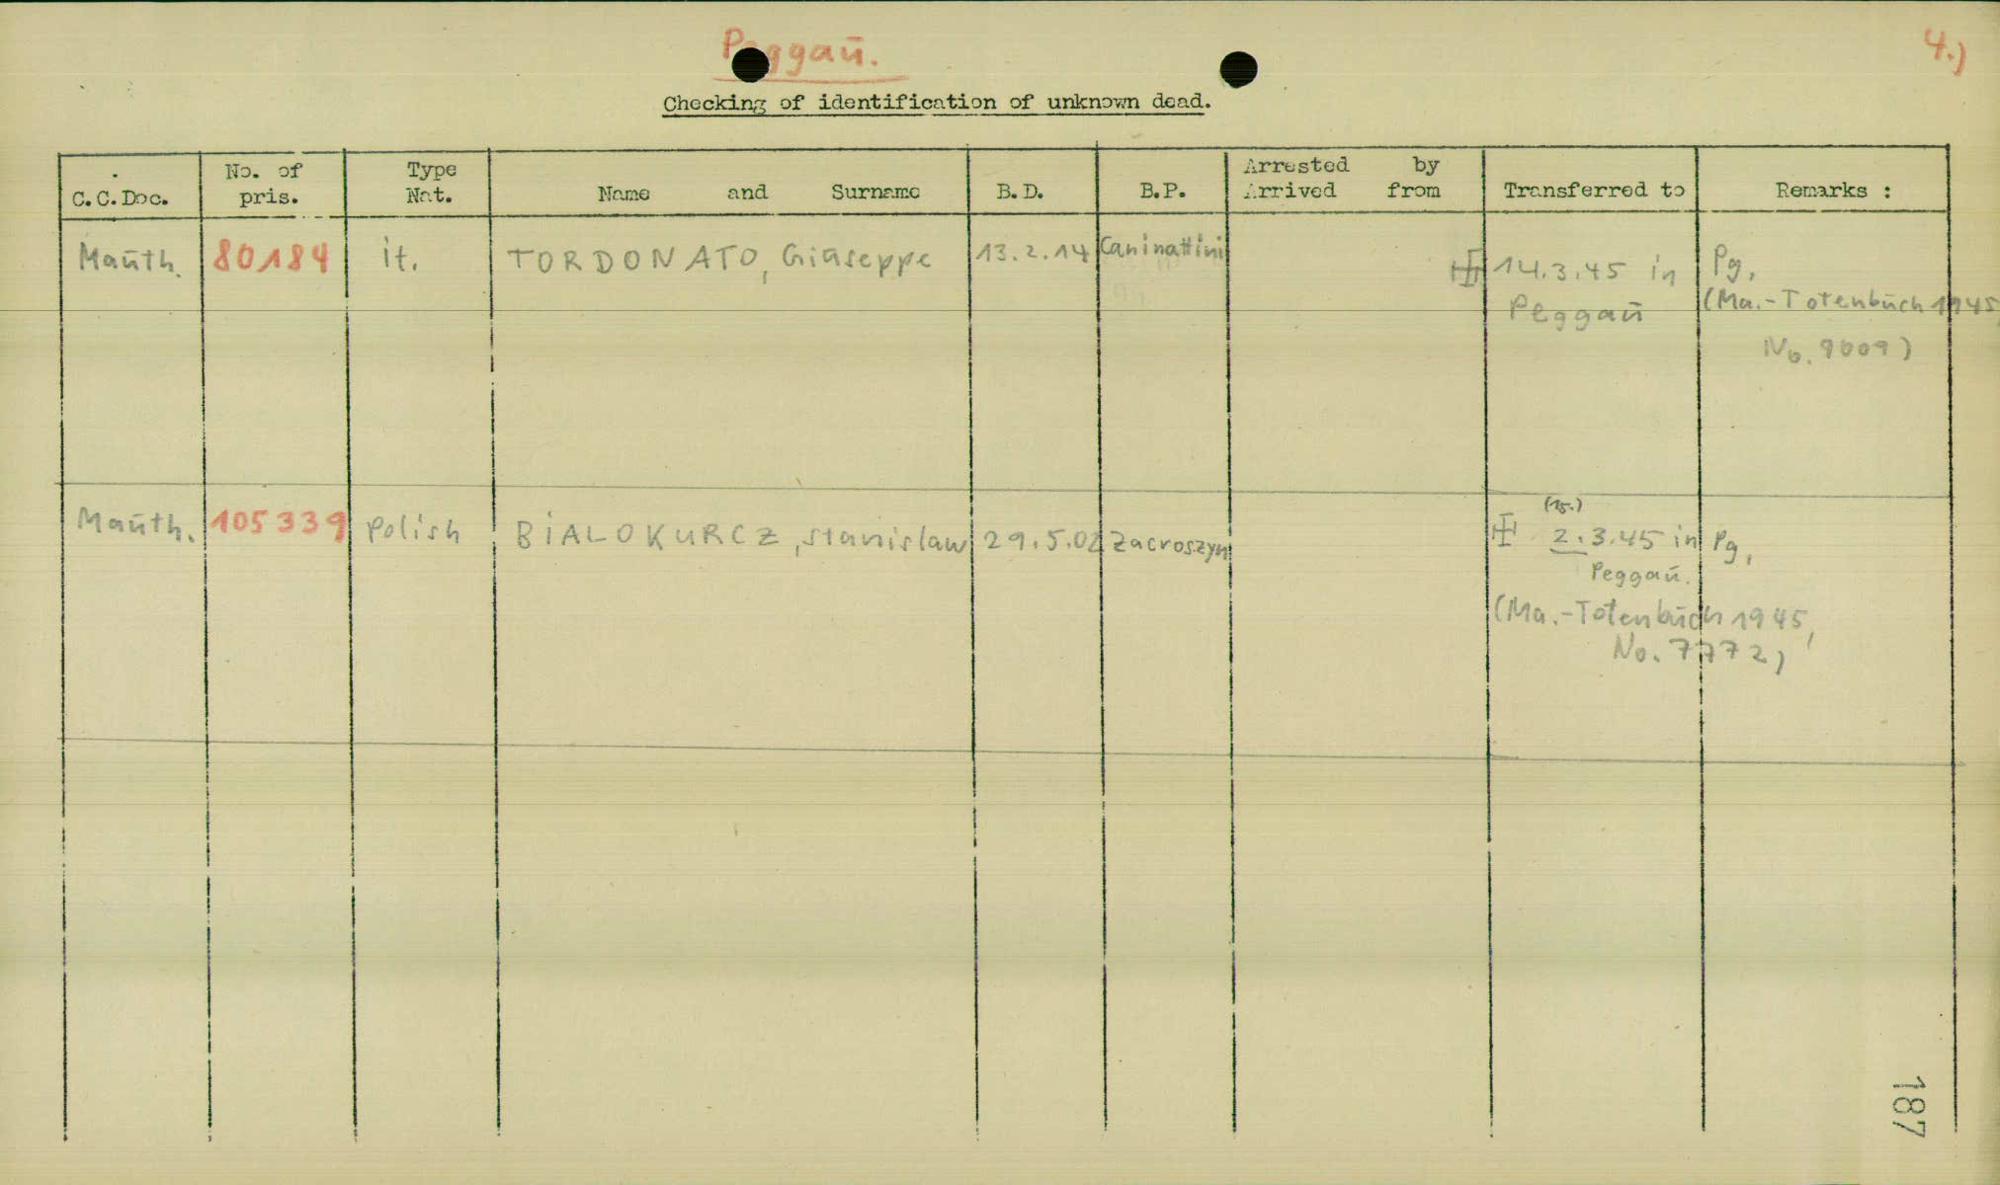 Peggau.
4.)
Checking of identification of unknown dead.
C.C.Doc.
No. of pris.
Type Nat.
Name and Surname
B.D.
B.P.
Arrested by
Arrived from
Transferred to
Remarks :
Mauth. 80184 it. TORDONATO, Giuseppe 13.2.14 Caninattini 14.3.45 in Pg,
Peggau (Ma.-Totenbuch 1945,
No. 9009)
(15.)
Mauth. 105339 Polish BIALOKURCZ, Stanislaw 29.5.02 Zacroszyn 2.3.45 in Pg,
Peggau.
(Ma.-Totenbuch 1945,
No. 7772)
187